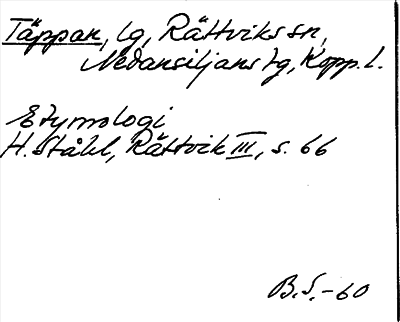 Täppan, lg, Rättviks sn,
Nedansiljans tg, Kopp. l.
Etymologi
H. Ståhl, Rättvik III, s. 66
B.S.-60